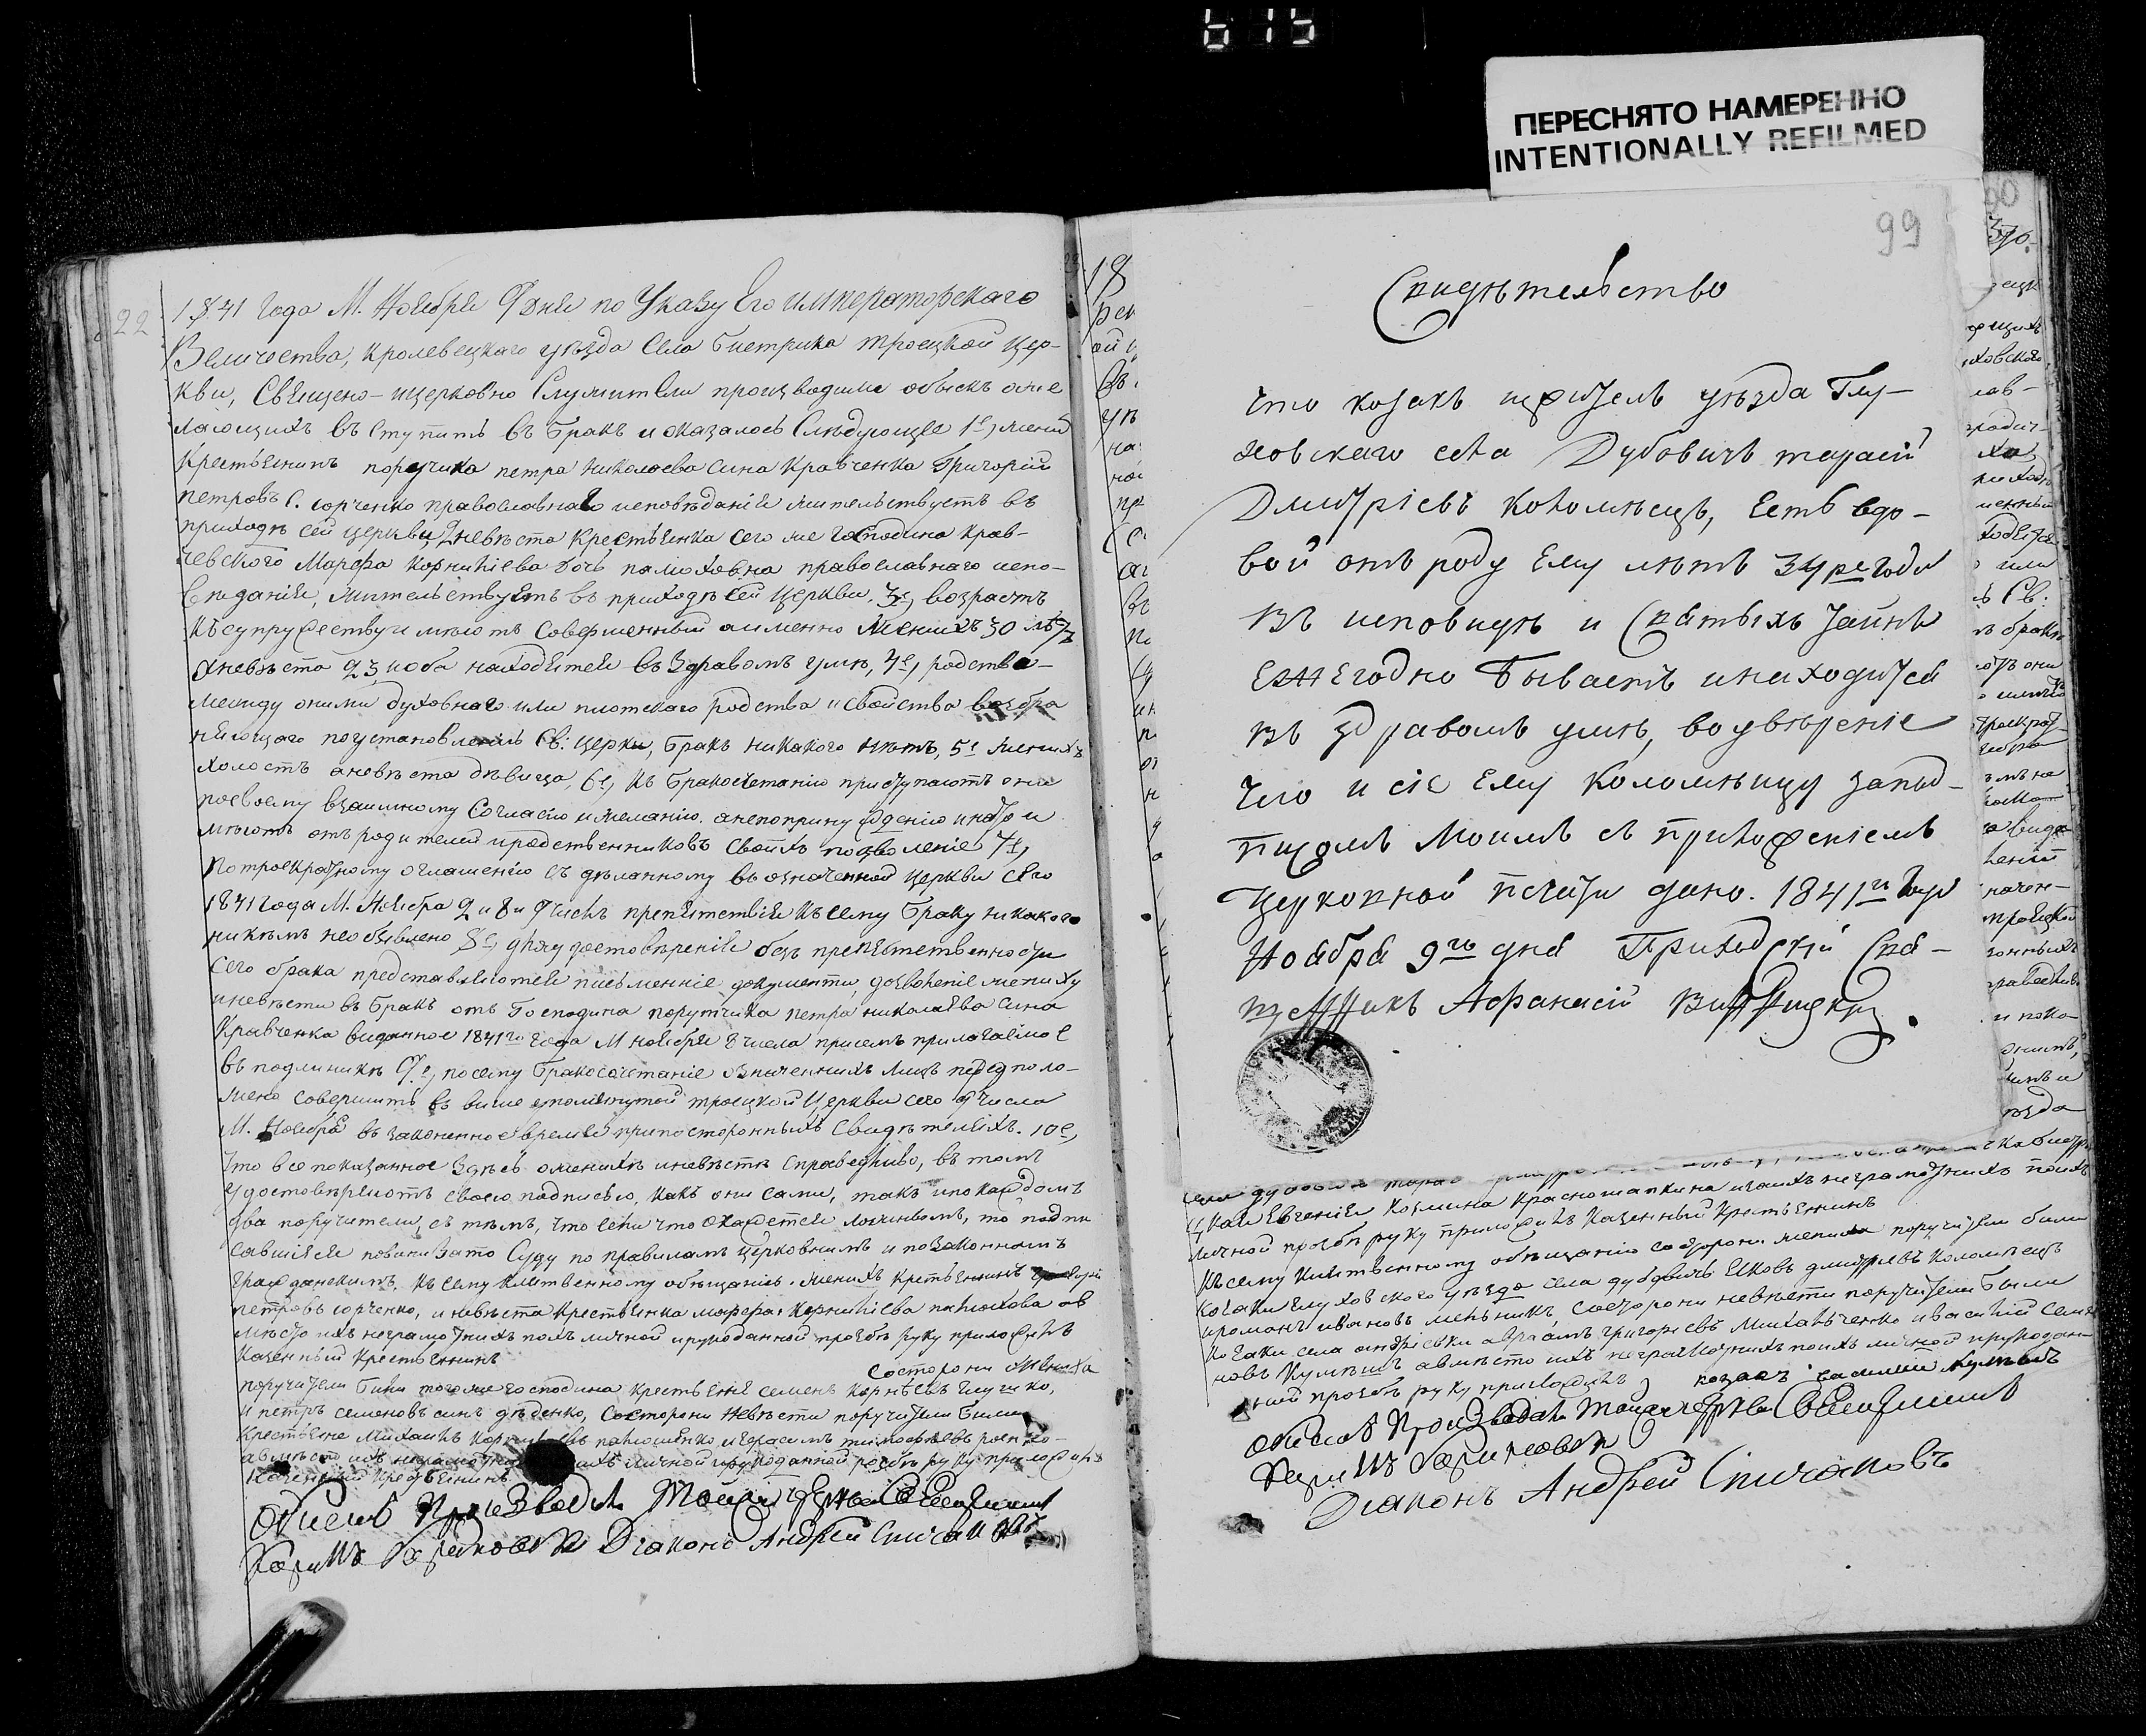 ПЕРЕСНЯТО НАМЕРЕННО
INTENTIONALLY REFILMED
22
1841 года М. Ноября 9 дня по Указу Его императорскаго
Величества, Кролевецкаго уѣзда Села Бистрика троецкой Цер-
кви, Священо-церковно Служители производили обыскъ оже
лающихъ въступить въ бракъ и оказалось Слѣдующее 1е, жених
Крестьянинъ поручика петра николаева сина Кравченка Григорій
петровъ С. юрченко православнаго исповѣданія жительствуетъ въ
приходѣ сей церкви, 2 невѣста Крестьянка сего же господина Крав-
ченского Марфа Корниліева дочь православнаго испо-
веданія, жительствуетъ въ приходѣ сей церкви, 3е, возрастъ
къ супружеству имѣютъ совершенный аименно Женихъ 30 лѣтъ
аневѣста 23, иоба находятся въ здравомъ умѣ, 4е, родства-
между оними духовнаго или плотскаго родства и свойства возбра
няющаго поустановленію Св: церкви, бракъ никакого нѣтъ, 5е женихъ
холостъ аневѣста дѣвица, 6е, къ бракосочетанію приступаютъ они
посвоему взаимному Согласію ижеланію, анепопринужденію инато и
мѣютъ отъ родителей иродственниковъ своихъ позволеніе 7е,
потроекратному оглашенію съдѣланному въ означенной церкви сего
1841 года М. Ноября 2 и 8 и 9 чиселъ препятствія къ сему браку никакого
никѣмъ необявлено 8е, для удостовѣренія безпрепятственности
сего брака представляются писменніе документи, дозволеніе жениху
иневѣсти въ бракъ отъ Господина порутчика петра николаева сина
Кравченка виданное 1841го года М ноября 8 числа присемъ прилагаемое
въ подлиникѣ 9е, посему бракосочетаніе означеннихъ лицъ предполо-
жено совершить въ више упомянутой троецкой Церкви сего 9 числа
М. Ноября въ законенное время припостороннихъ Свидѣтеляхъ. 10е,
Что все показанное здѣсь оженихѣ иневѣстѣ справедливо, въ томъ
удостовѣряютъ своею подписью, какъ они сами, такъ ипокаждомъ
два поручители, съ тѣмъ, что если что окажется ложнымъ, то подпи
савшіеся повини зато Суду по правиламъ церковнимъ и позаконнамъ
гражданскимъ. Къ сему клятвенному обѣщанію. женихъ Крестьянинъ Григорій
петровъ юрченко, и невѣста крестьянка марфа Корниліева ав
мѣсто ихъ неграмотнихъ поихъ личной ирукоданной прозбѣ руку приложилъ
Казенный Крестьянинъ
состорони Жениха
поручители били тогоже господина крестьяне семенъ Корнѣевъ
и петръ семеновъ синъ дяденко, Состорони Невѣсти поручители били
Крестьяне Михаилъ игерасимъ тимофѣевъ
авмѣсто ихъ личной ирукоданной прозбѣ руку приложилъ
Казенный Крестьянинъ
Обискъ Производилъ Тоей церкви Священникъ
Діаконъ Андрей Спичаковъ
99
Свидѣтельство
что козакъ жртель уѣзда Глу-
ховскаго села Дубовичъ тарасій
Дмитріевъ Коломѣецъ, есть вдо-
вой отъ роду ему лѣтъ 34ре годи
въ исповиди и Святыхъ Тайнъ
ежегодно бываетъ инаходится
въ здравомъ умѣ, воувѣреніе
чего и сіе ему Коломѣйцу запод-
писомъ Моимъ съ приложеніемъ
Церковной печати дано. 1841го года
Ноября 9го дня Приходскій Свя-
щенникъ Афанасій
Евгенія Козмина Краснощапкина изаихъ неграмотнихъ поихъ
личной прозбѣ руку приложилъ Казенный Крестьянинъ
Къ сему клятвенному обѣщанію состорони жениха поручители били
козаки глуховского уѣзда села дубовичъ Яковъ дмитріевъ Коломѣецъ
ироманъ ивановъ мельникъ, состорони невѣсти поручители били
козаки села андрѣевки авраамъ григоріевъ Михальченко ивасилій Семе
новъ авмѣсто ихъ неграмотнихъ поихъ личной ирукодан-
ной прозбѣ руку приложилъ козакъ василій
Обискъ Производилъ Тоей Церкви Священникъ
Діаконъ Андрей Спичаковъ